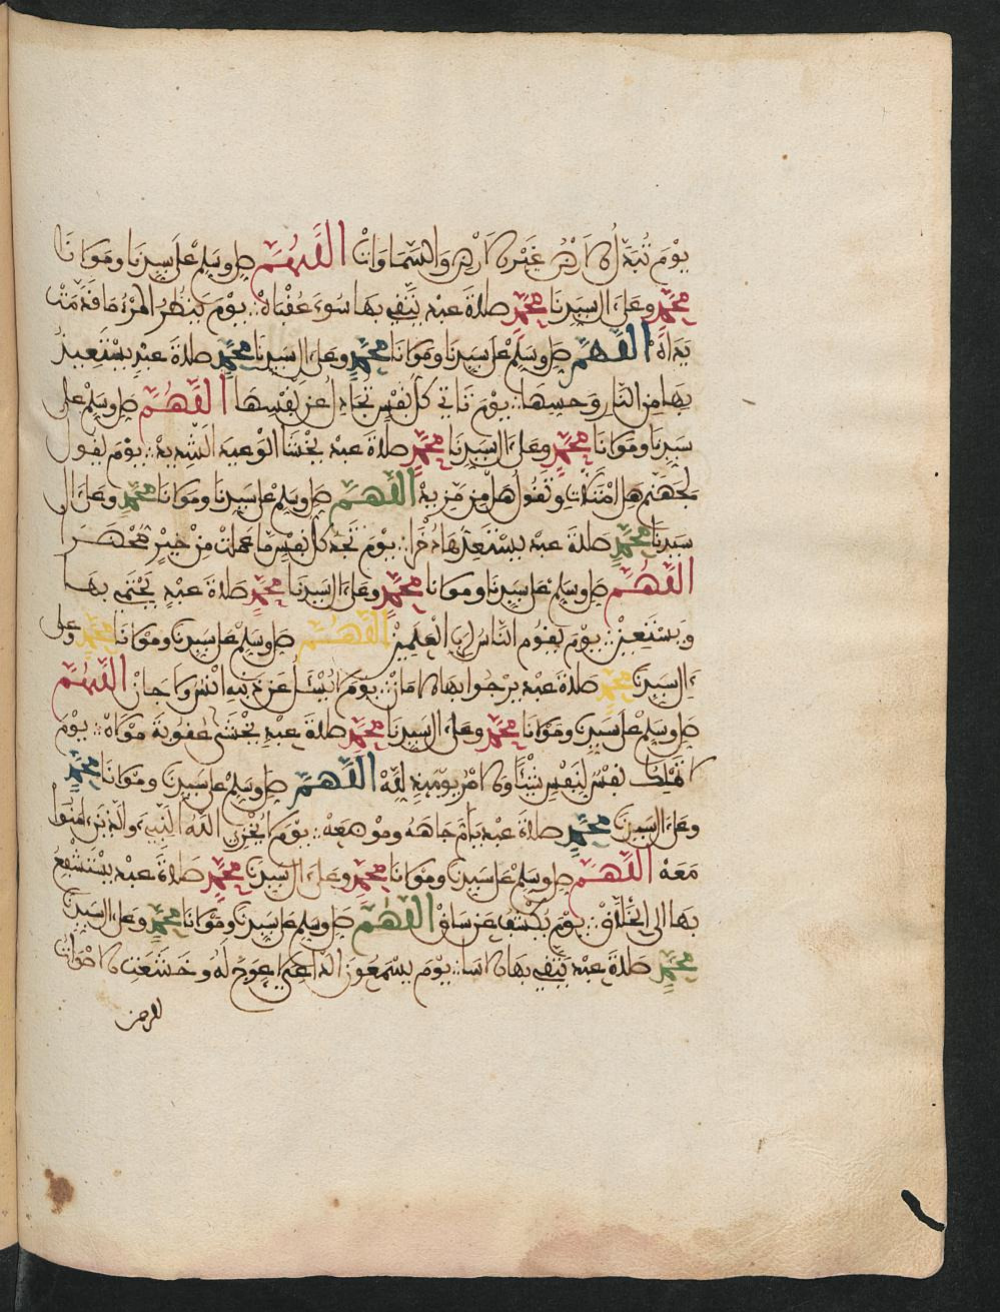 يوم تبدل الارض غير الارض والسماوات اللهم صل وسلم على سيدنا ومولانا
محمد وعلى ءال سيدنا محمد صلاة عبد يتقي بها سوء عقباه يوم ينظر المرء ما قدمت
يداه اللهم صل وسلم على سيدنا ومولانا محمد وعلى ءال سيدنا محمد صلاة عبد يستعيذ
بها من النار وحسها يوم تاتي كل نفس تجادل عن نفسها اللهم صل وسلم على
سيدنا ومولانا محمد وعلى ءال سيدنا محمد صلاة عبد يخشا الوعيد الشديد يوم يقول
لجهنم هل امتلات وتقول هل من مزيد اللهم صل وسلم على سيدنا ومولانا محمد وعلى ءال
سيدنا محمد صلاة عبد يستعدها ذخرا يوم تجد كل نفس ما عملت من خير محضرا
اللهم صل وسلم على سيدنا ومولانا محمد وعلى ءال سيدنا محمد صلاة عبد يحتمي بها
ويستعين يوم يقوم الناس لرب العلمين اللهم صل وسلم على سيدنا ومولانا محمد وعلى
ءال سيدنا محمد صلاة عبد يرجوا بها الامان يوم لا يسئل عن ذنبه انس ولا جان اللهم
صل وسلم على سيدنا ومولانا محمد وعلى ءال سيدنا محمد صلاة عبد يخشى عقوبة مولاه يوم
لا تملك نفس لنفس شيئا والامر يومئذ لله اللهم صل وسلم على سيدنا ومولانا محمد
وعلى ءال سيدنا محمد صلاة عبد جاهه يوم لا يخزي الله النبيء والذين ءامنوا
معه اللهم صل وسلم على سيدنا ومولانا محمد وعلى ءال سيدنا محمد صلاة عبد يستشفع
بها الى الخلاق يوم يكشف عن ساق اللهم صل وسلم على سيدنا ومولانا محمد وعلى ءال سيدنا
محمد صلاة عبد يتقي بها يوم يتبعون الداعي لا عوج له وخشعت الاصوات
للرحمن